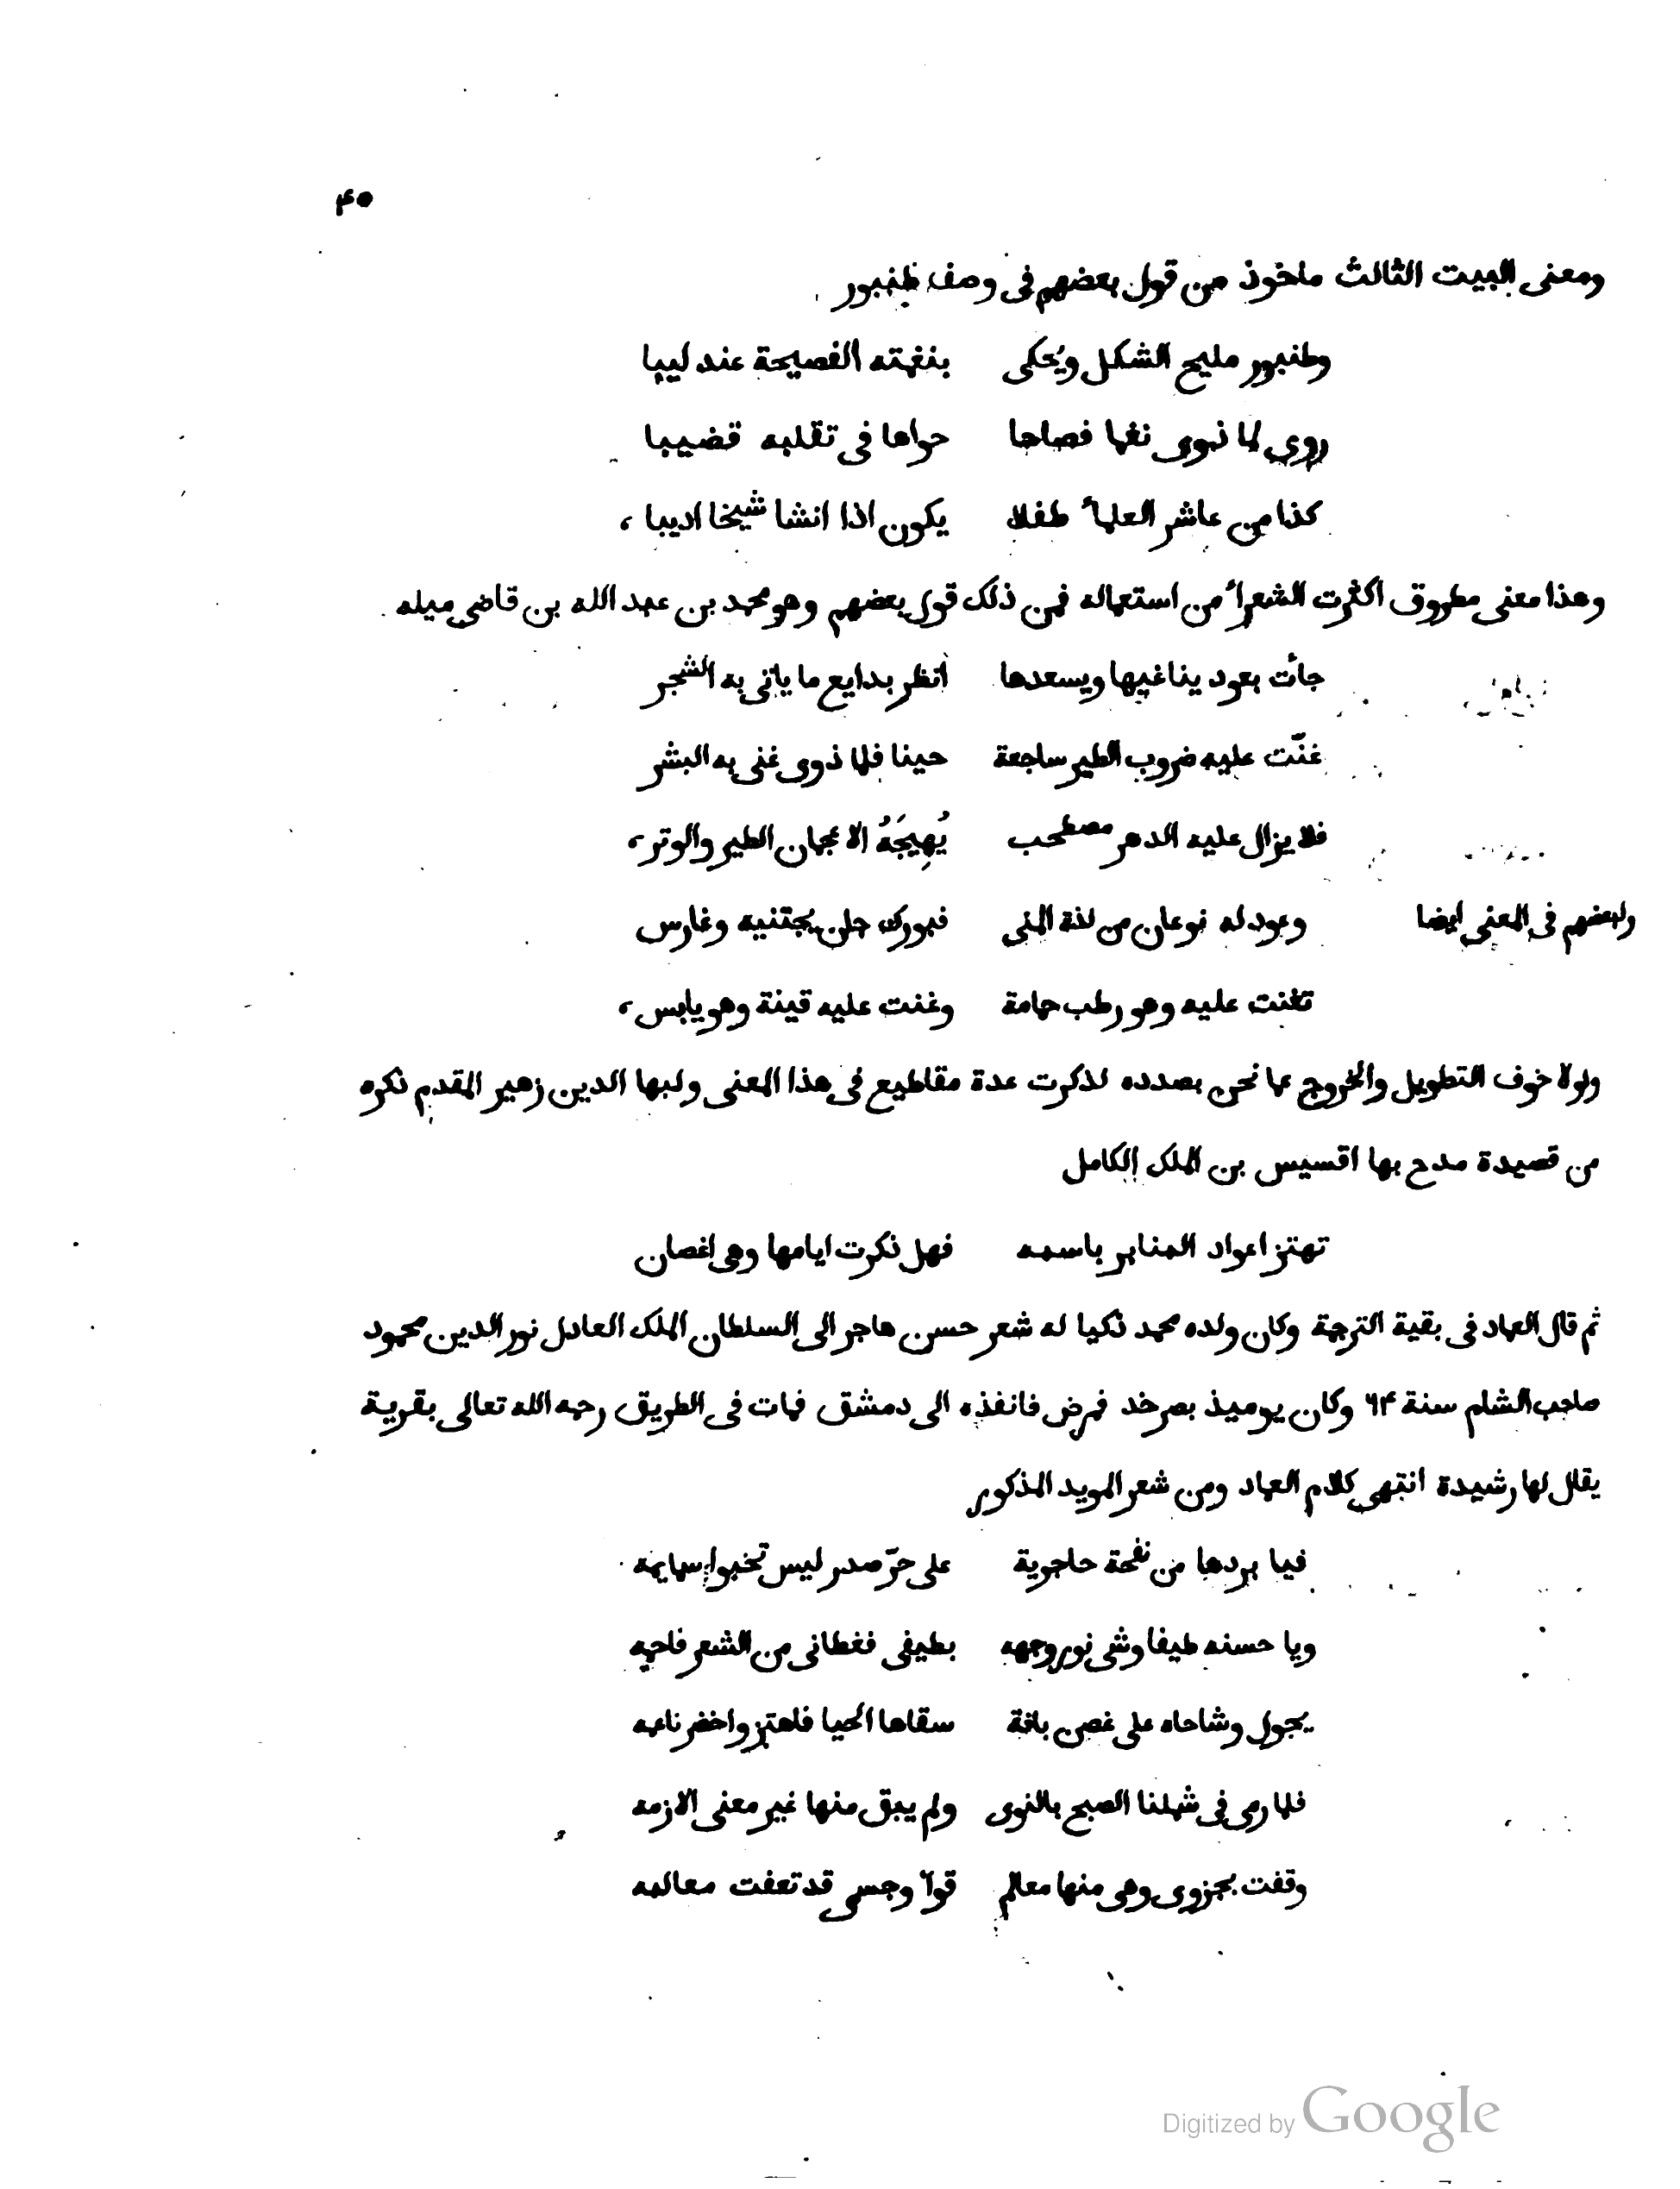 ٤٥
ومعنى البيت الثالث ماخوذ من قول بعضهم فى وصف طنبور
وطنبور مليح الشكل ويُحكى بنغمته الفصيحة عندليبا
روى لما ذوى نغما فصاحا حواها فى تقلبه قضيبا
كذا من عاشر العلمأ طفلا يكون اذا انشا شيخا اديبا،
وهذا معنى مطروق اكثرت الشعرأ من استعماله فمن ذلك قول بعضهم وهو محمد بن عبد الله بن قاضى ميله
جأت بعود يناغيها ويسعدها انظر بدايع ما ياتى به الشجر
غنّت عليه ضروب الطير ساجعة حينا فلما ذوى غنى به البشر
فلا يزال عليه الدهر مصطحب يُهيجَهُ الاعجمان الطير والوتر،
ولبعضهم فى المعنى ايضا وعود له نوعان من لذة المنى فبورك جان يجتنيه وغارس
تغنت عليه وهو رطب حمامة وغنت عليه قينة وهو يابس،
ولولا خوف التطويل والخروج عما نحن بصدده لذكرت عدة مقاطيع فى هذا المعنى ولبها الدين زهير المقدم ذكره
من قصيدة مدح بها اقسيس بن الملك الكامل
تهتز اعواد المنابر باسمه فهل ذكرت ايامها وهى اغصان
ثم قال العماد فى بقية الترجمة وكان ولده محمد ذكيا له شعر حسن هاجر الى السلطان الملك العادل نور الدين محمود
صاحب الشام سنة ٦٤ وكان يوميذ بصرخد فمرض فانفذه الى دمشق فمات فى الطريق رحمه الله تعالى بقرية
يقال لها رشيدة انتهى كلام العماد ومن شعر المويد المذكور
فيا بردها من نفحة حاجرية على حرّ صدر ليس تخبوا سمايمه
ويا حسنه طيفا وشى نور وجهه بطيفى فغطانى من الشعر فاحمه
يجول وشاحاه على غصن بانة سقاها الحيا فاهتز واخضر ناعمه
فلما رمى فى شملنا الصبح بالنوى ولم يبق منها غير معنى الازمه
وقفت بجزوى وهى منها معالم قوآ وجسمى قد تعفت معالمه
Digitized by Google